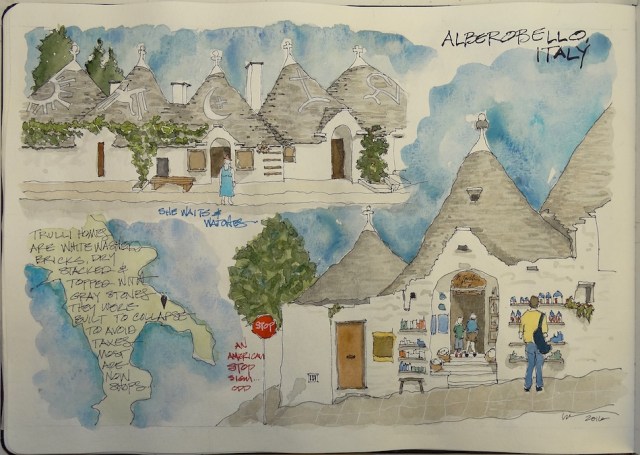 ALBEROBELLO,
ITALY
SHE WAITS &
WATCHES~
TRULLI HOMES
ARE WHITEWASHED
BRICKS, DRY
STACKED &
TOPPED WITH
GRAY STONES
THEY WERE
BUILT TO COLLAPSE
TO AVOID
TAXES
MOST
ARE
NOW
SHOPS
STOP
AN
AMERICAN
STOP
SIGN...
ODD
2016